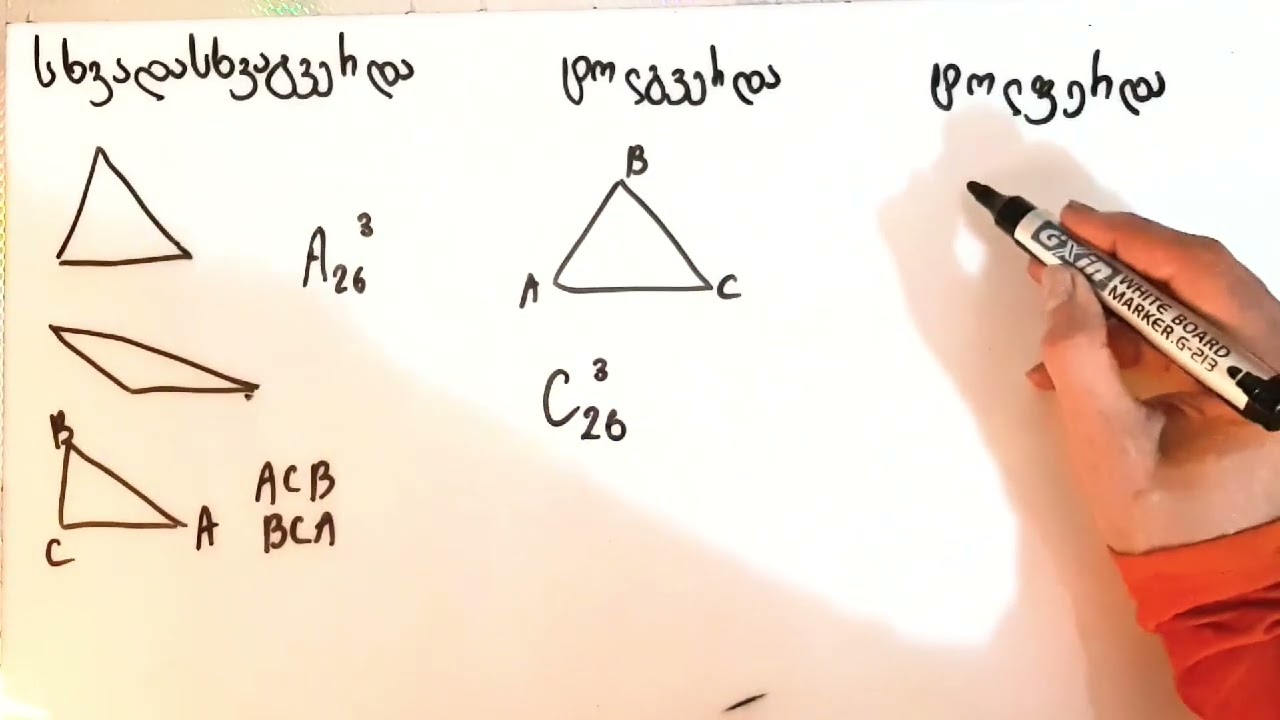 სხვადასხვაგვერდა
ტოლგვერდა
ტოლფერდა
A₂₆³
B
A
C
C₂₆³
B
C
A
ACB
BCA
GXin
WHITE BOARD
MARKER.G-213